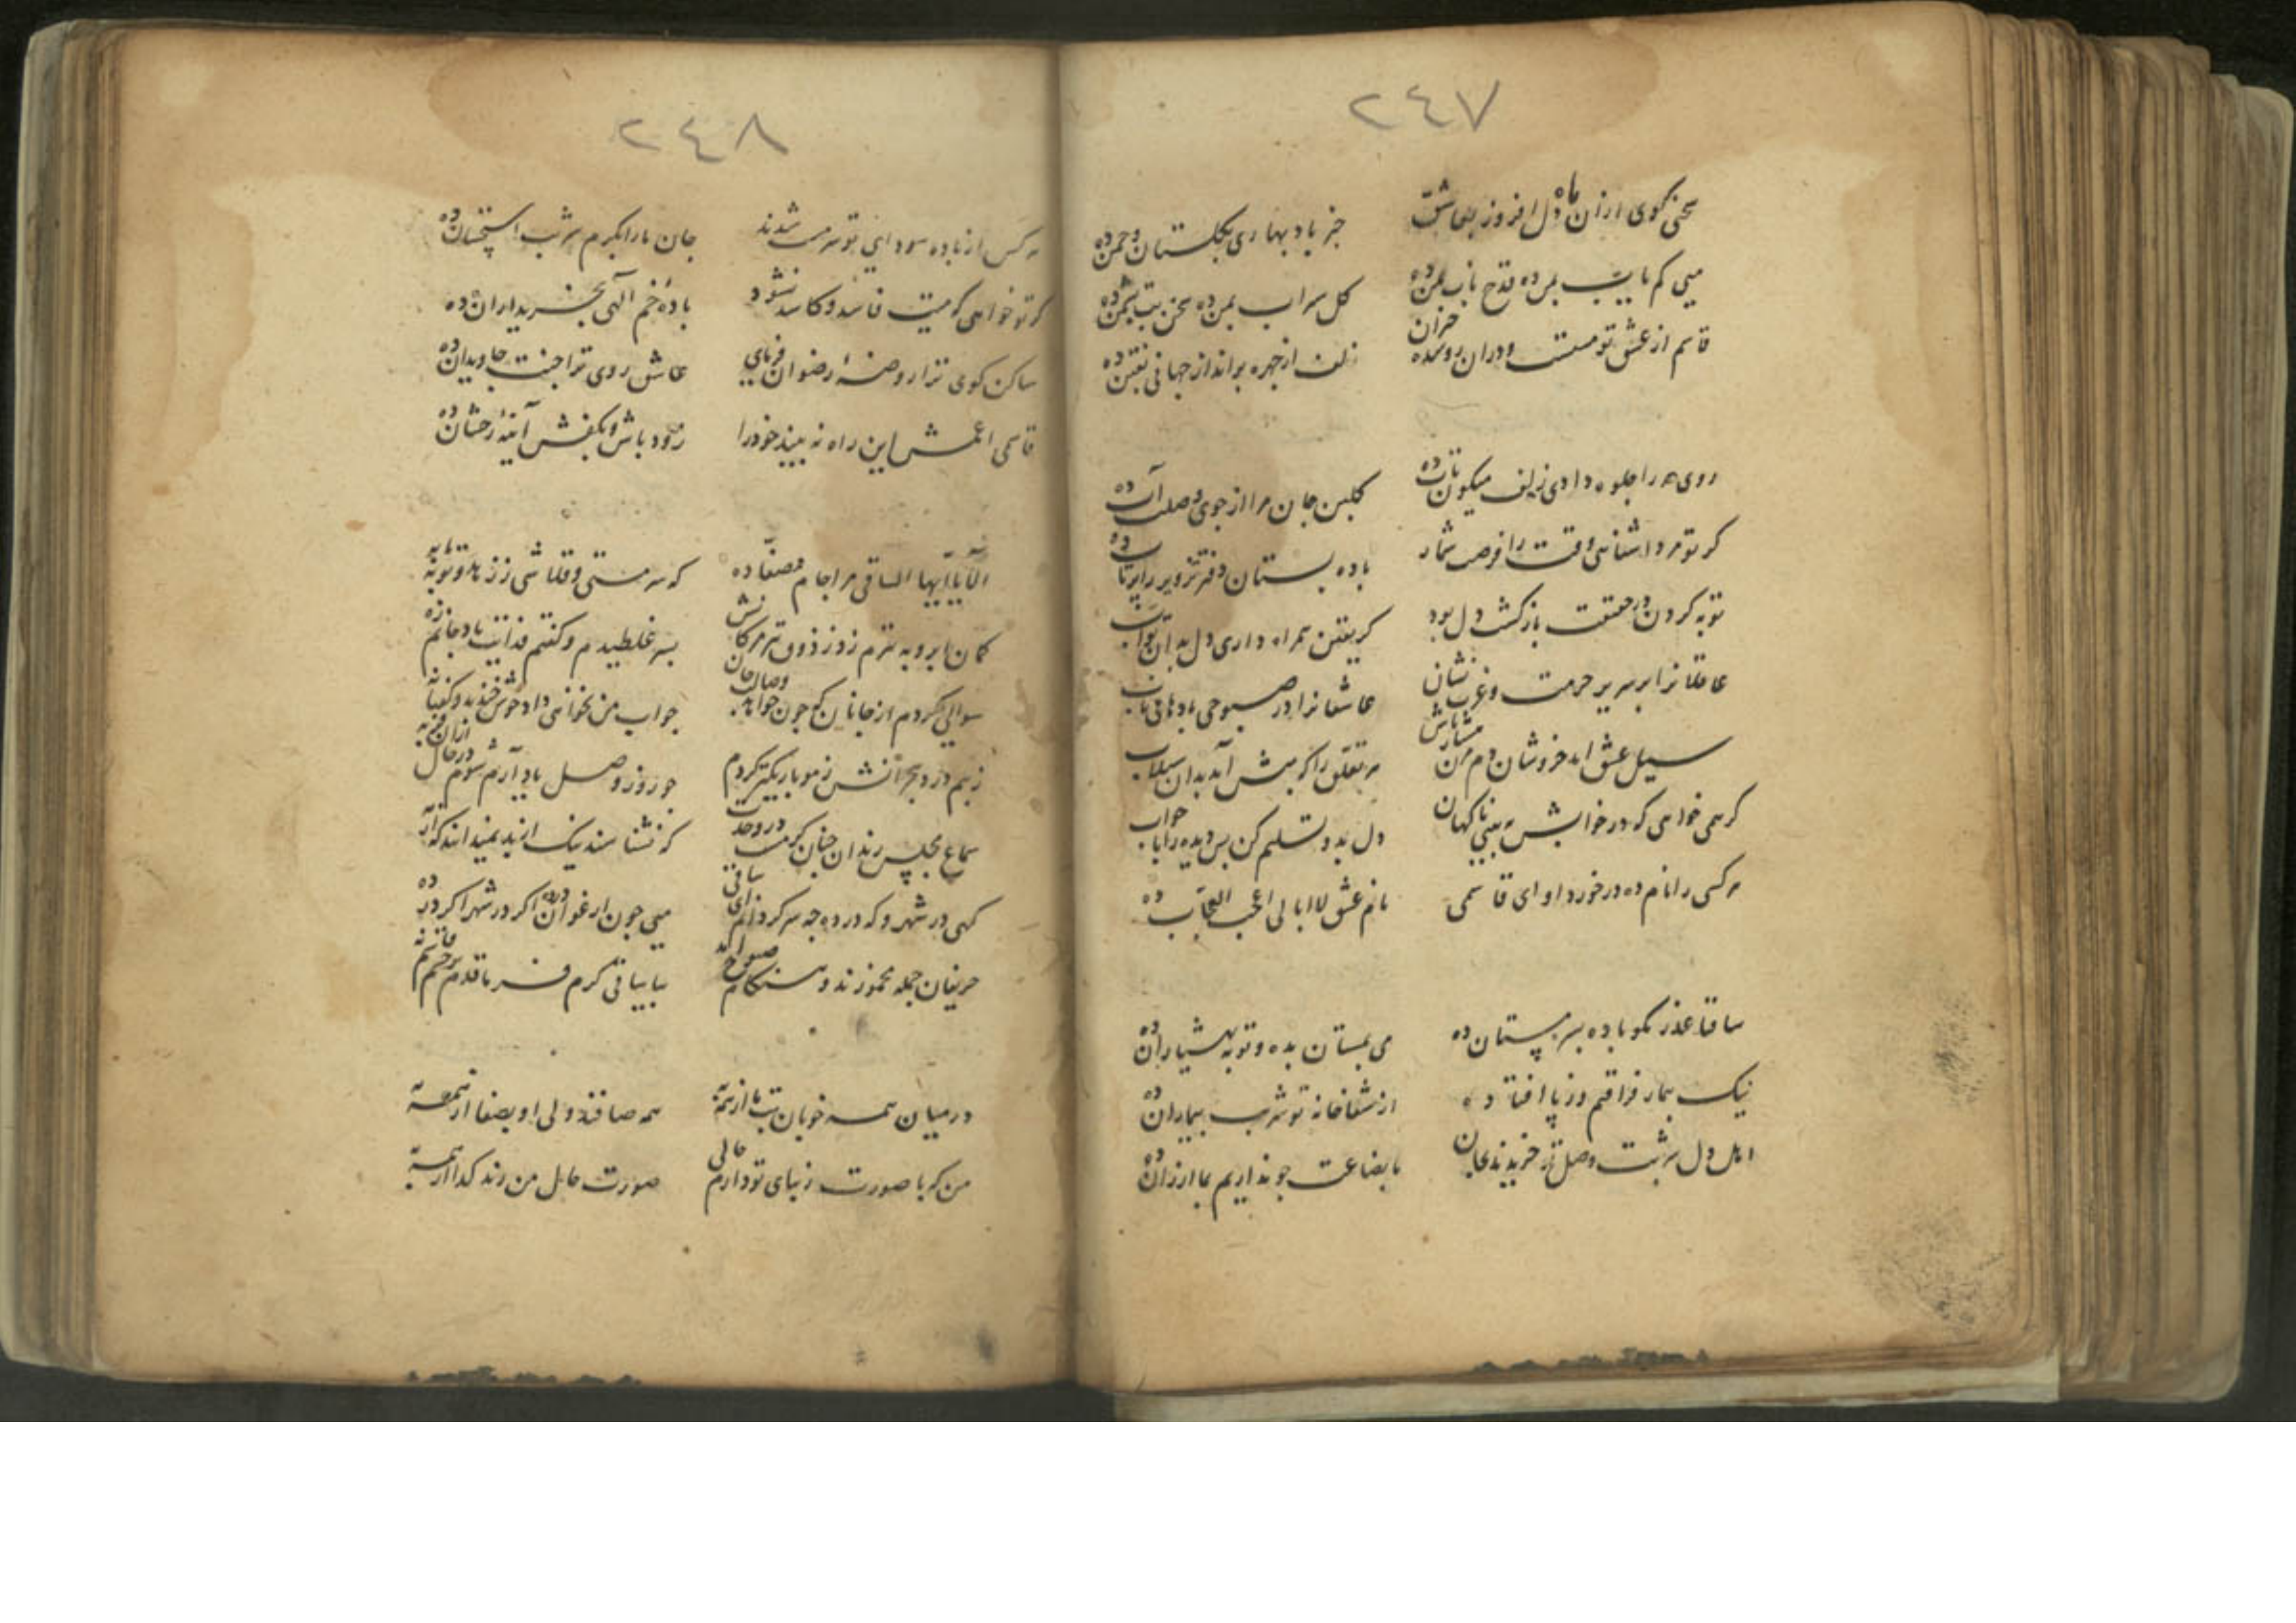 ٢٤٧
سخنی گوی ازان ماه دل افروز بعاشق
خبر باد بهاری بگلستان و چمن ده
می کم یابت بمن ده قدح ناب بمن ده
گل سیراب بمن ده سخن بت بشمن ده
قاسم از عشق تو مستست ودران روی حزان
زلف از چهره برانداز جهانی بفتن ده
روی مه را جلوه دادی زلف میکون تاب ده
گلبن جان مرا از جوی وصلت آب ده
کر تو مرد اشنائی وقت را فرصت شمار
باده بستان دفتر تزویر را برتاب ده
توبه کردن در حقیقت بازگشت دل بود
کر یقین همراه داری دل بدان تواب ده
عاقلانرا بر سریر حرمت و عزت نشان
عاشقانرا در صبوحی بادهای ناب ده
سیل عشق امد خروشان دم مزن
هر تعلق را که پیش آید بدان سیلاب
کر همی خواهی که در خوابش به بینی ناکهان
دل بدو تسلیم کن پس دیده را با خواب
هر کسی را نام ده در خورد او ای قاسمی
نام عشق لاابالی اعجب العجاب ده
ساقیا عذر مکو باده بسرمستان ده
می بمستان بده و توبه بهشیاران ده
نیک بیمار فراقیم و ز پا افتاده
از شفاخانه تو شربت بیماران ده
اهل دل شربت وصل تو خریدند بجان
ما بضاعت چو نداریم بما ارزان ده
٢٤٨
هر کس از باده سودای تو سرمست شدند
جان ما را بکرم شربت
کر تو خواهی که میت فاسد و کاسد نشود
باده خم الهی بخریداران ده
ساکن کوی ترا روضه رضوان فرمای
عاشق روی ترا جنت جاویدان ده
قاسمی اعمش این راه نه بیند خود را
زود باش و بکفش آینه رخشان ده
الا یا ایها الساقی مرا جام مصفا ده
که سرمستی و قلاشی ز زهد و توبه
کمان ابرو به تیرم زد ز ذوق تیر مژکانش
بسر غلطیدم و کفتم فدایت باد جانم
سوالی کردم از جانان که چون خواهد وصالت جان
جواب من نخواهی داد خوش خندید و کفتا نه
زبیم درد هجرانش ز مو باریکتر کردم
چو روز وصل یاد آرم شوم در حال ازان فربه
سماع مجلس رندان چنان کرمست در وحدت
که نشناسند نیک از بد نمیدانند که از
کهی در شهر و که در ده چه سرکردانم ای ساقی
می چون ارغوان ده اکر در شهر اکر در ده
حریفان جمله مخمورند و هنکام صبوح آمد
بیا ساقی کرم فرما قدم بر چشم
در میان همه خوبان بت ما از همه به
همه صافند ولی او بصفا از همه به
من که با صورت زیبای تو دارم حالی
صورت حال من رند کدا از همه به